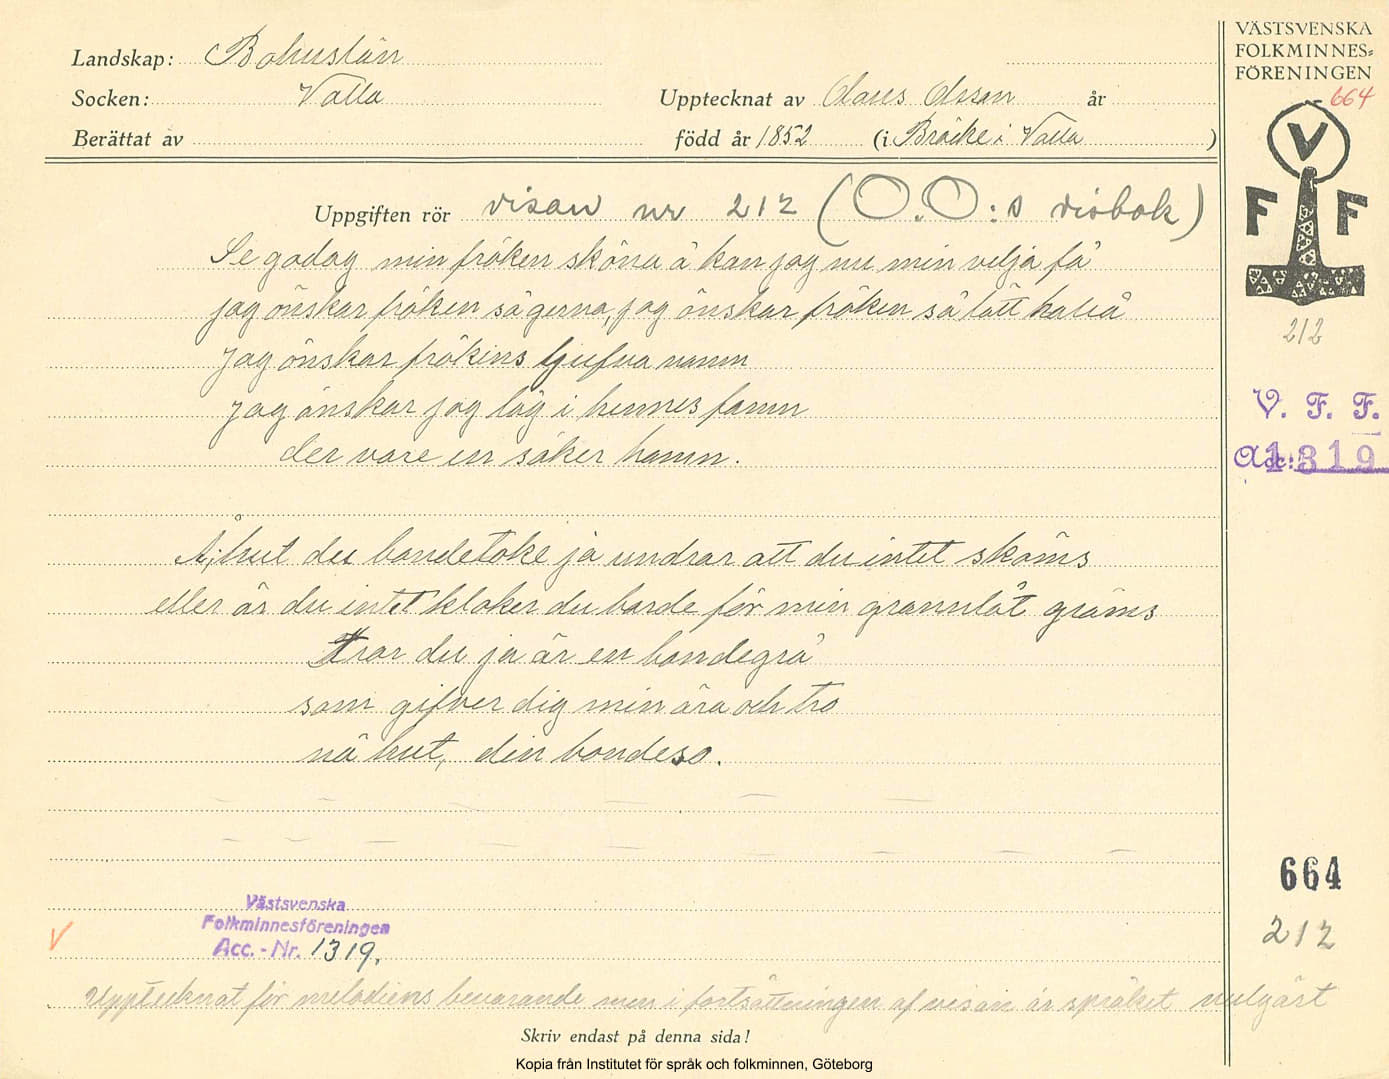 Landskap: Bohuslän
Socken: Valla
Upptecknat av Olaus Olsson år
Berättat av
född år 1852 (i Bräcke i Valla )
Uppgiften rör visan nr 212 (O.O:s visbok)
Se godag min fröken sköna å kan jag nu min velja få
jag önskar fröken så gerna, jag önskar fröken så lätt
Jag önskar frökens ljufva namn
Jag önskar jag låg i hennes famn
der vore en säker hamn.
Å, hut du bondetoke ja undrar att du intet skäms
eller är du intet kloker du borde för min grannlåt gräms
Tror du ja är en bondegrå
som gifver dig min ära och tro
nä hut, din bondeso.
Västsvenska
Folkminnesföreningen
Acc. - Nr. 1319.
V
Upptecknat för melodiens bevarande men i fortsättningen af visan är språket vulgärt
Skriv endast på denna sida!
Kopia från Institutet för språk och folkminnen, Göteborg
VÄSTSVENSKA
FOLKMINNES-
FÖRENINGEN
664
V
F F
212
V. F. F.
Acc: 1319
664
212